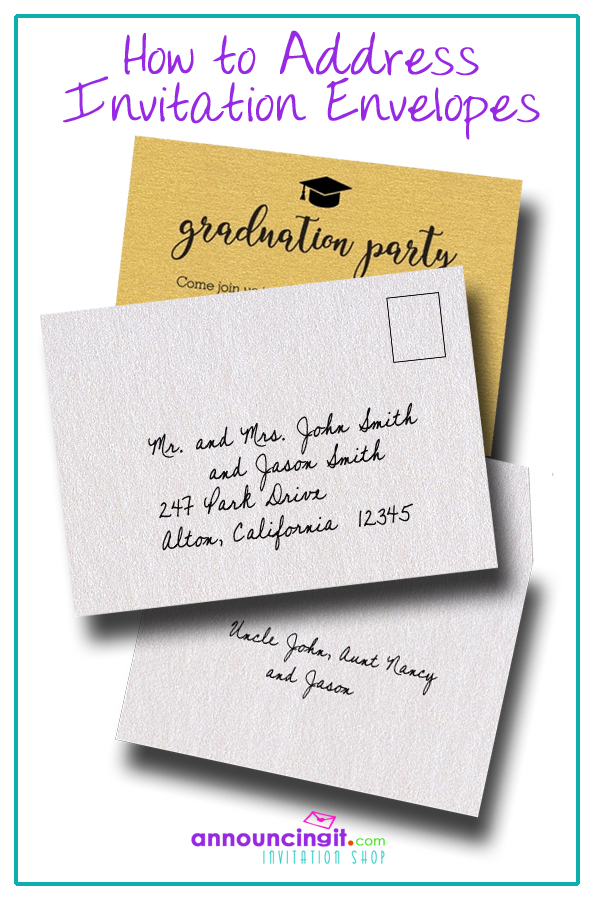 How to Address
Invitation Envelopes
graduation party
Come join
Mr. and Mrs. John Smith
and Jason Smith
247 Park Drive
Alton, California 12345
Uncle John, Aunt Nancy
and Jason
announcingit.com
INVITATION SHOP